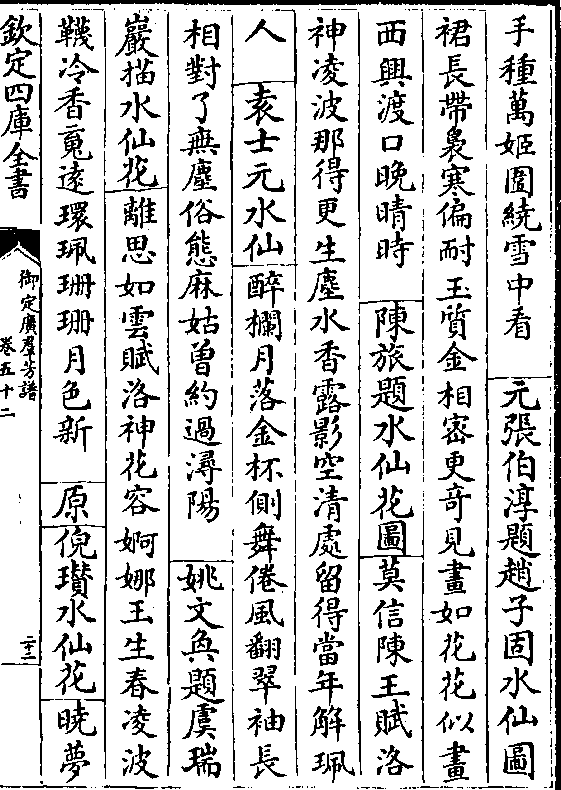 手種萬姬圍繞雪中看　元張伯淳題趙子固水仙圖
裙長帶裊寒偏耐玉質金相密更竒見畫如花花似畫
西興渡口晚晴時　陳旅題水仙花圖　莫信陳王賦洛
神凌波那得更生塵水香露影空清處留得當年解珮
人　袁士元水仙　醉欄月落金杯側舞倦風翻翠袖長
相對了無塵俗態麻姑曾約過潯陽　姚文奐題虞瑞
巖描水仙花　離思如雲賦洛神花容婀娜王生春凌波
韈冷香䰟逺環珮珊珊月色新　原　倪瓚水仙花　曉夢
欽定四庫全書
御定廣羣芳譜
卷五十二
二十二